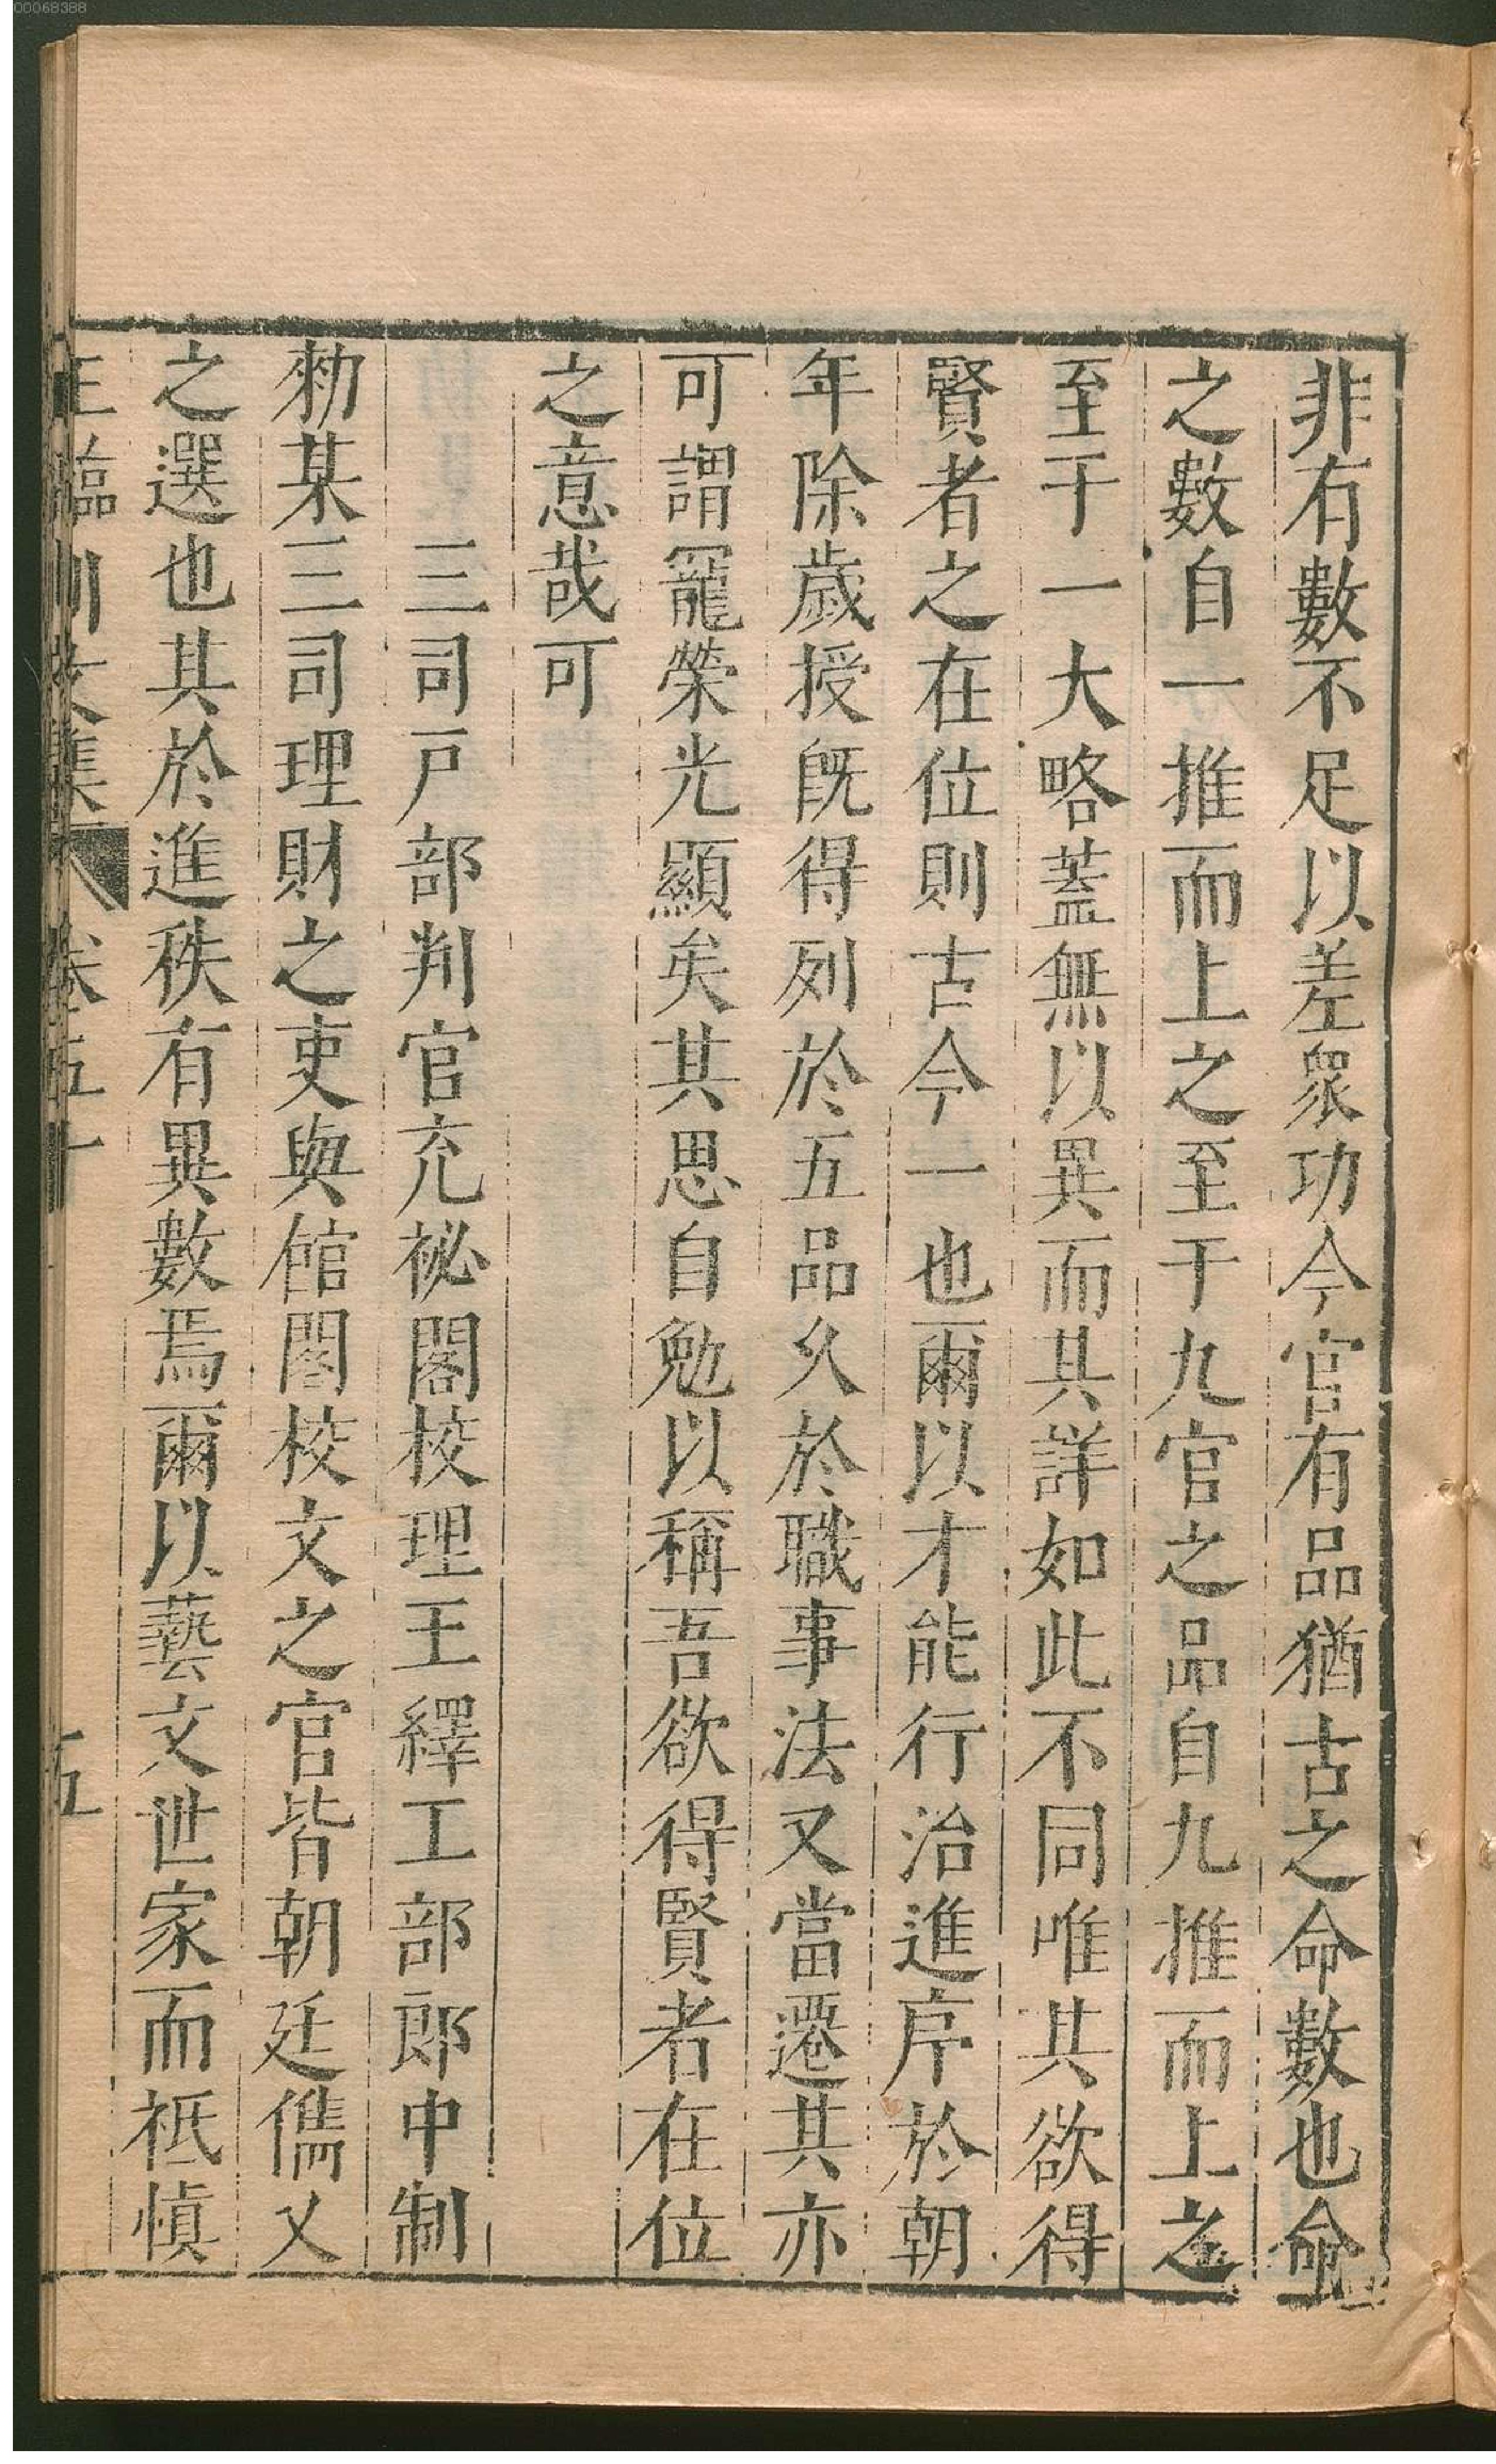 00068388
非有數不足以差衆功今官有品猶古之命數也命
之數自一推而上之至于九官之品自九推而上之
至于一大略蓋無以異而其詳如此不同唯其欲得
賢者之在位則古今一也爾以才能行治進序於朝
年除歲授旣得列於五品久於職事法又當遷其亦
可謂寵榮光顯矣其思自勉以稱吾欲得賢者在位
之意哉可
三司戸部判官充祕閣校理王繹工部郎中制
勑某三司理財之吏與館閣校文之官皆朝廷儁乂
之選也其於進秩有異數焉爾以藝文世家而祗愼
王臨川文集 卷五十 五